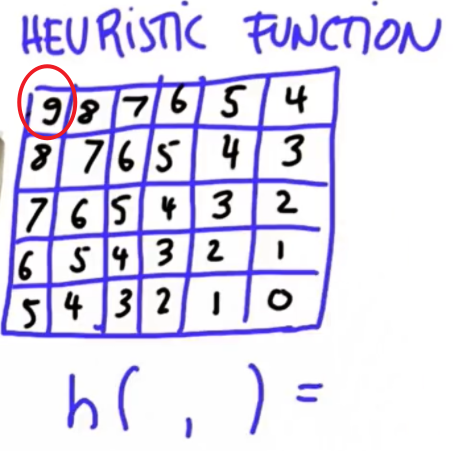 HEURISTIC FUNCTION
9 8 7 6 5 4
8 7 6 5 4 3
7 6 5 4 3 2
6 5 4 3 2 1
5 4 3 2 1 0
h( , ) =